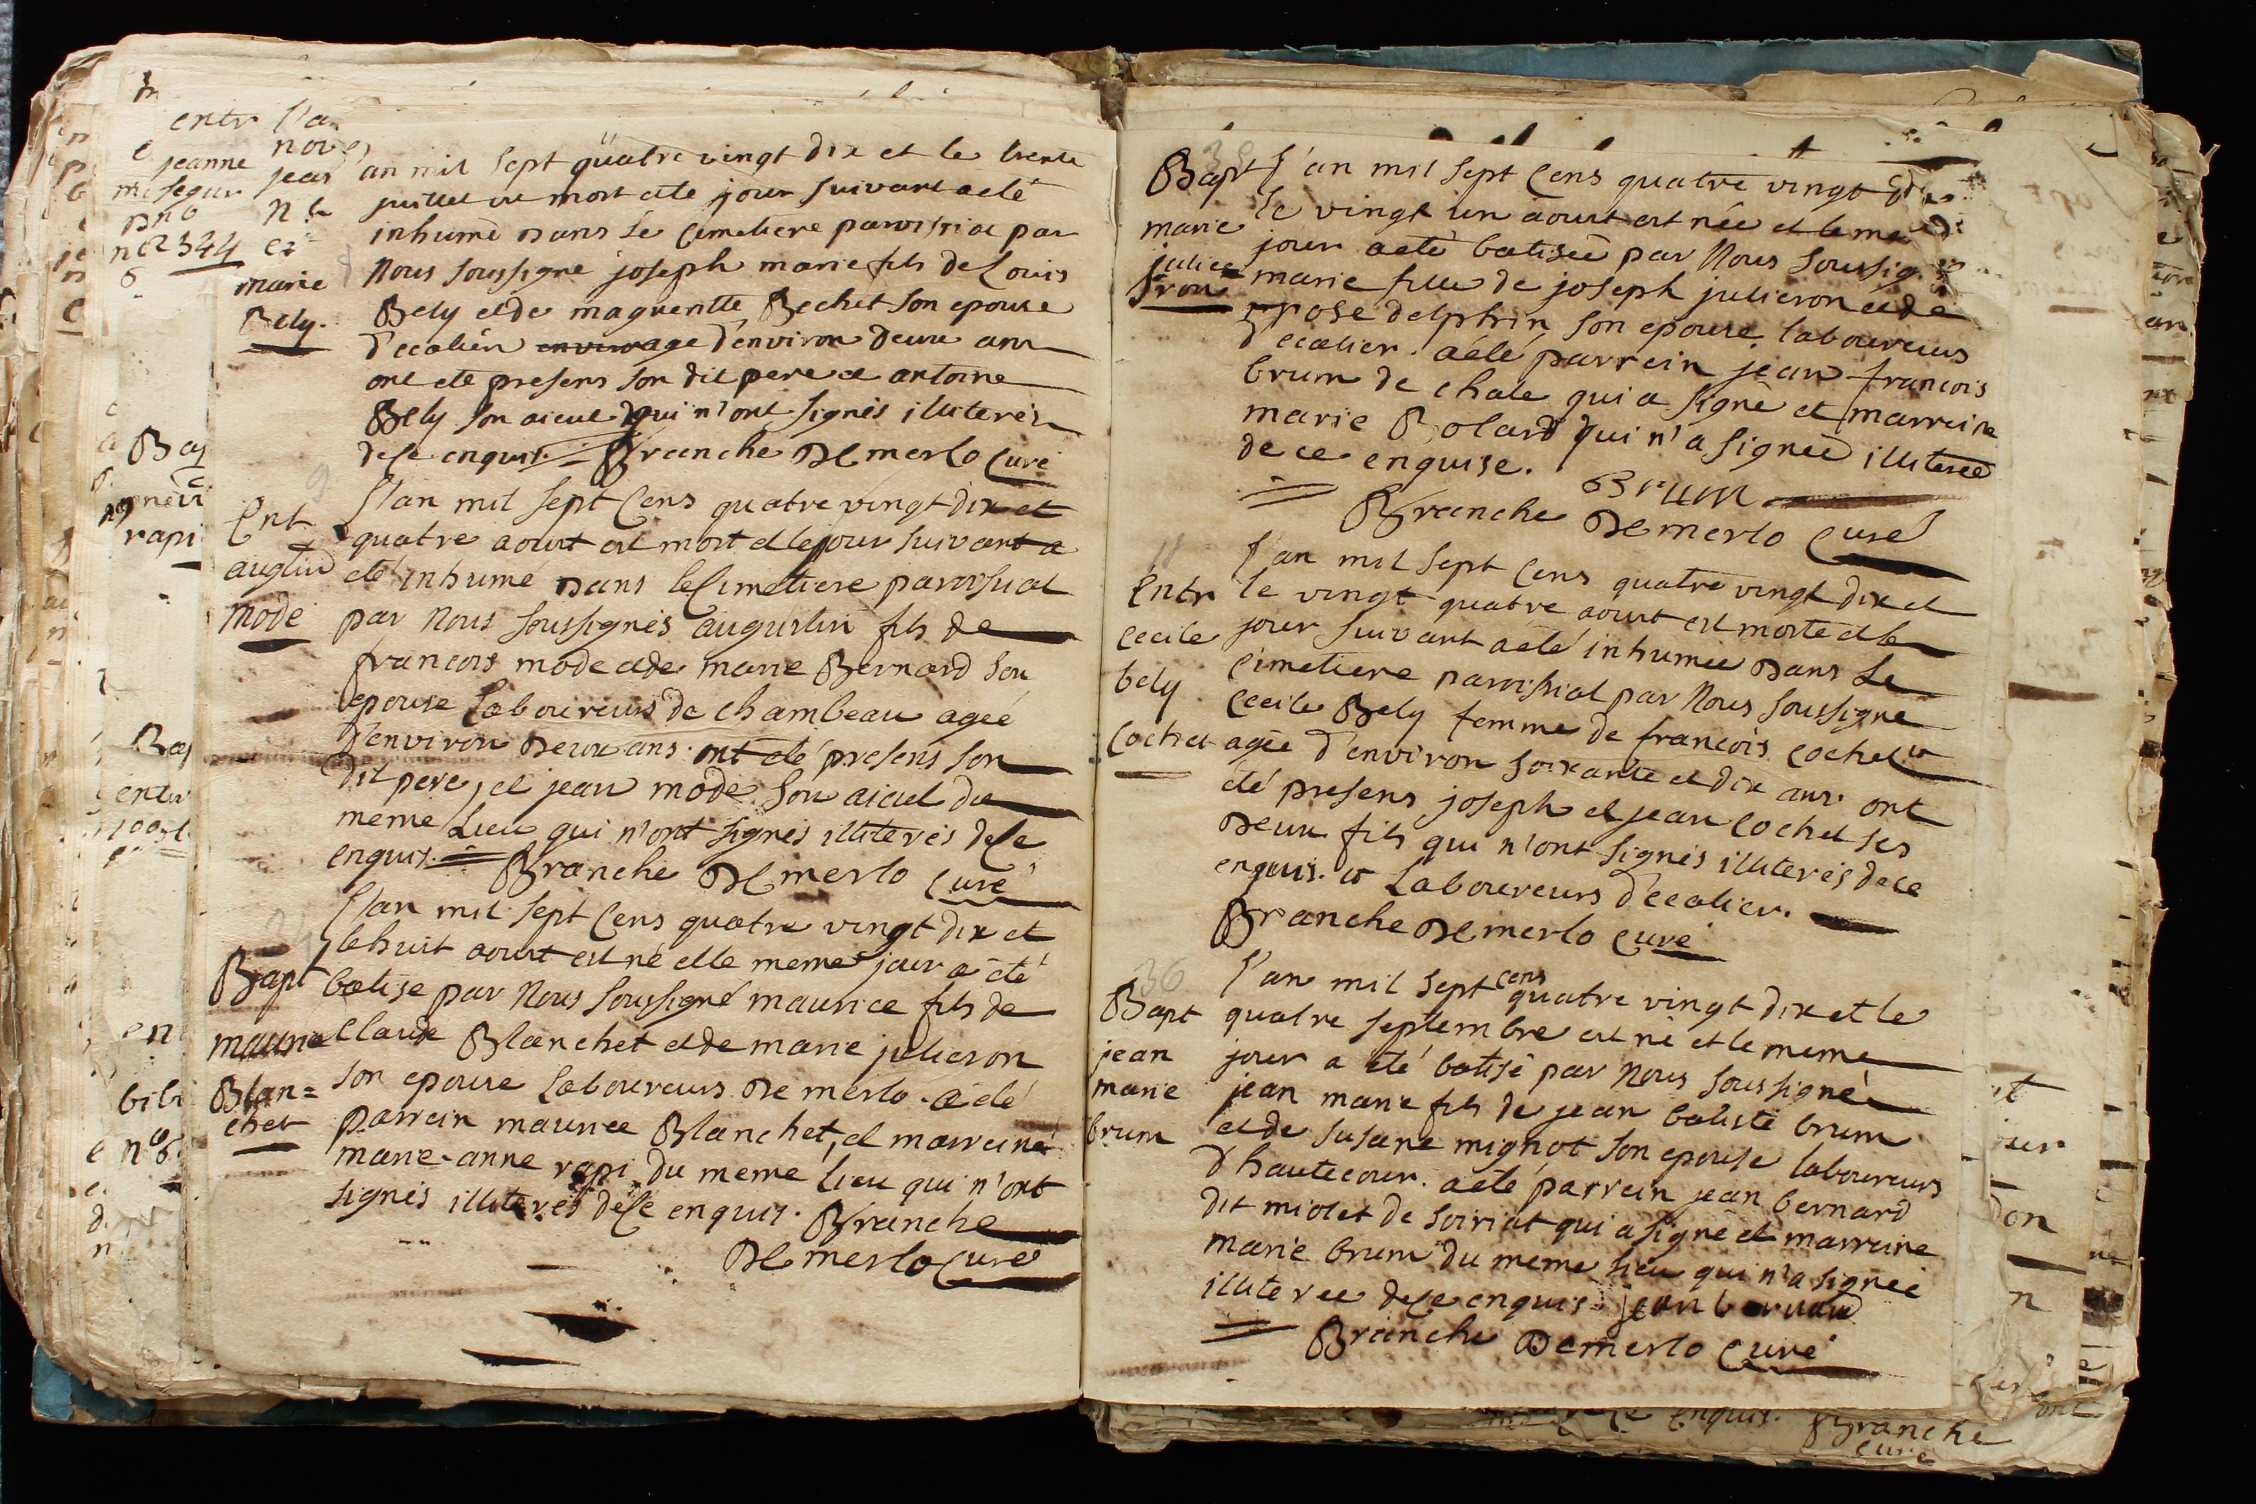 marie
Bely.
an mil sept quatre vingt dix et le trente
juillet est mort et le jour suivant a eté
inhumé Dans le Cimetiere paroissial par
Nous soussigné joseph marie fils de Louis
Bely et de Bechet son epouse
d'ecalier d'environ Deux ans
ont eté presens son dit pere et antoine
Bely son aieul qui n'ont signés illiterés
de Ce enquis. Branche De merlo Curé
Ent
augtin
Mode
l'an mil sept Cens quatre vingt dix et
quatre aoust est mort et le jour suivant a
eté inhumé Dans le Cimetiere paroissial
par Nous soussignés augustin fils de
francois mode et de marie Bernard son
epouse Laboureurs de chambeau ageé
d'environ Deux ans. ont eté presens son
dit pere, et jean mode son aieul du
meme Lieu qui n'ont signés illiterés de Ce
enquis. Branche De merlo Curé
Bapt
maurice
Blan=
chet
l'an mil sept Cens quatre vingt dix et
le huit aoust est né et le meme jour a eté
batise par Nous soussigné maurice fils de
Claude Blanchet et de marie julieron
son epouse Laboureurs De merlo. a eté
parrein maurice Blanchet, et marreine
marie-anne rapi du meme Lieu qui n'ont
signés illiterés de Ce enquis. Branche
De merlo Curé
Bapt
marie
julie
=ron
l'an mil sept Cens quatre vingt dix
le vingt un aoust est née et le me
jour a eté batiseé par Nous soussig
marie fille de joseph julieron et de
rose delphin son epouse laboureurs
d'ecalier. a eté parrein jean francois
brum de chale qui a signé et marreine
marie Bolard qui n'a signeé illitereé
de ce enquise.
Brum
Branche De merlo Curé
Entr
cecile
bely
Cochet
l'an mil sept Cens quatre vingt dix et
le vingt quatre aoust est morte et le
jour suivant a eté inhumeé Dans le
Cimetiere paroissial par Nous soussigné
Cecile Bely femme de francois cochet
ageé d'environ soixante et dix ans. ont
eté presens joseph et jean Cochet ses
Deux fils qui n'ont signés illiterés de ce
enquis. Laboureurs d'ecalier.
Branche De merlo Curé
36
Bapt
jean
marie
brum
l'an mil sept cens quatre vingt dix et le
quatre septembre est né et le meme
jour a eté batisé par Nous soussigné
jean marie fils de jean batiste brum
et de susane mignot son epouse laboureurs
d'hautecour. a eté parrein jean bernard
dit miolet de soiriat qui a signé et marreine
marie brum du meme lieu qui n'a signeé
illitereé de Ce enquis jean bernard
Branche De merlo Curé